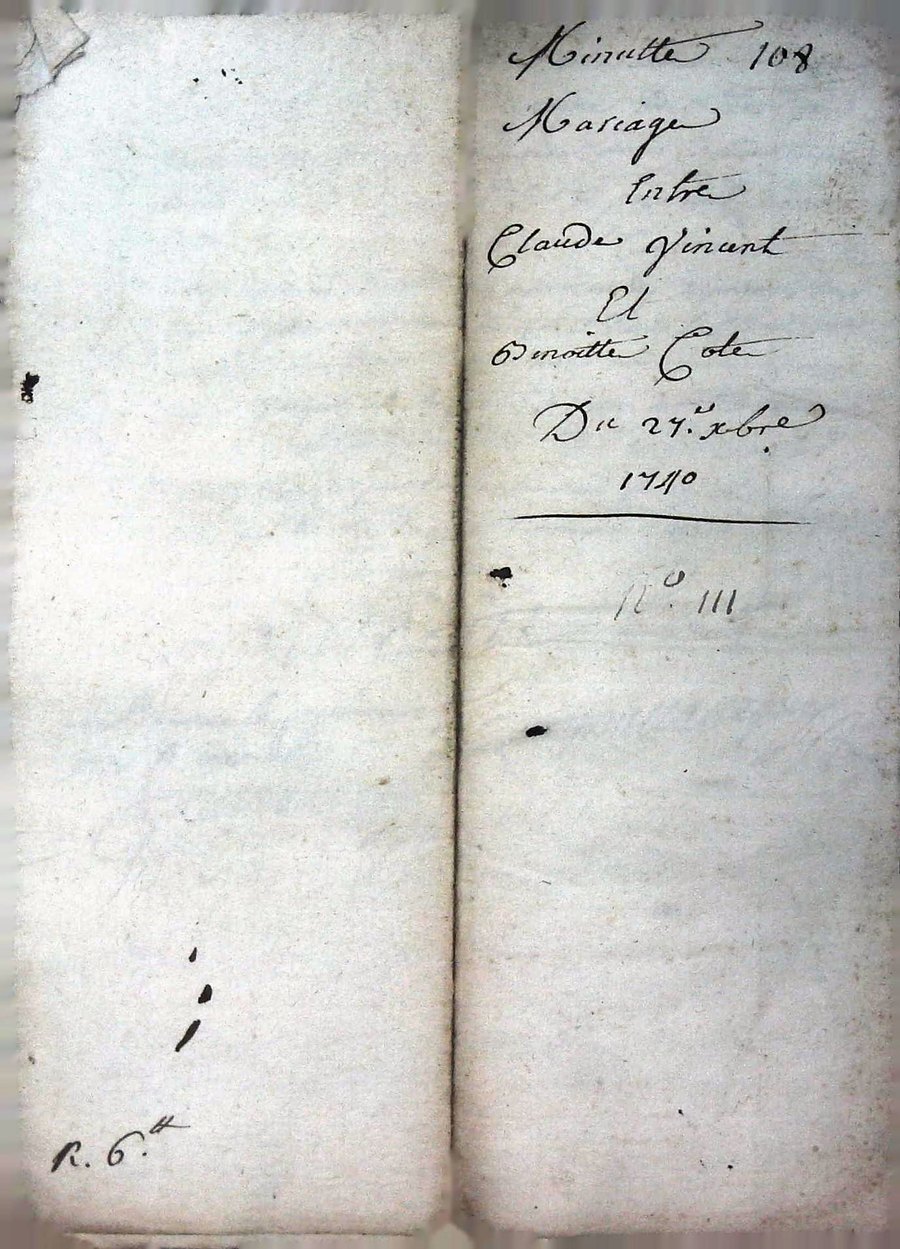 Minutte 108
Mariage
Entre
Claude Vincent
Et
Benoitte Cote
Du 27.e xbre
1740
N.o 111
R. 6.tt